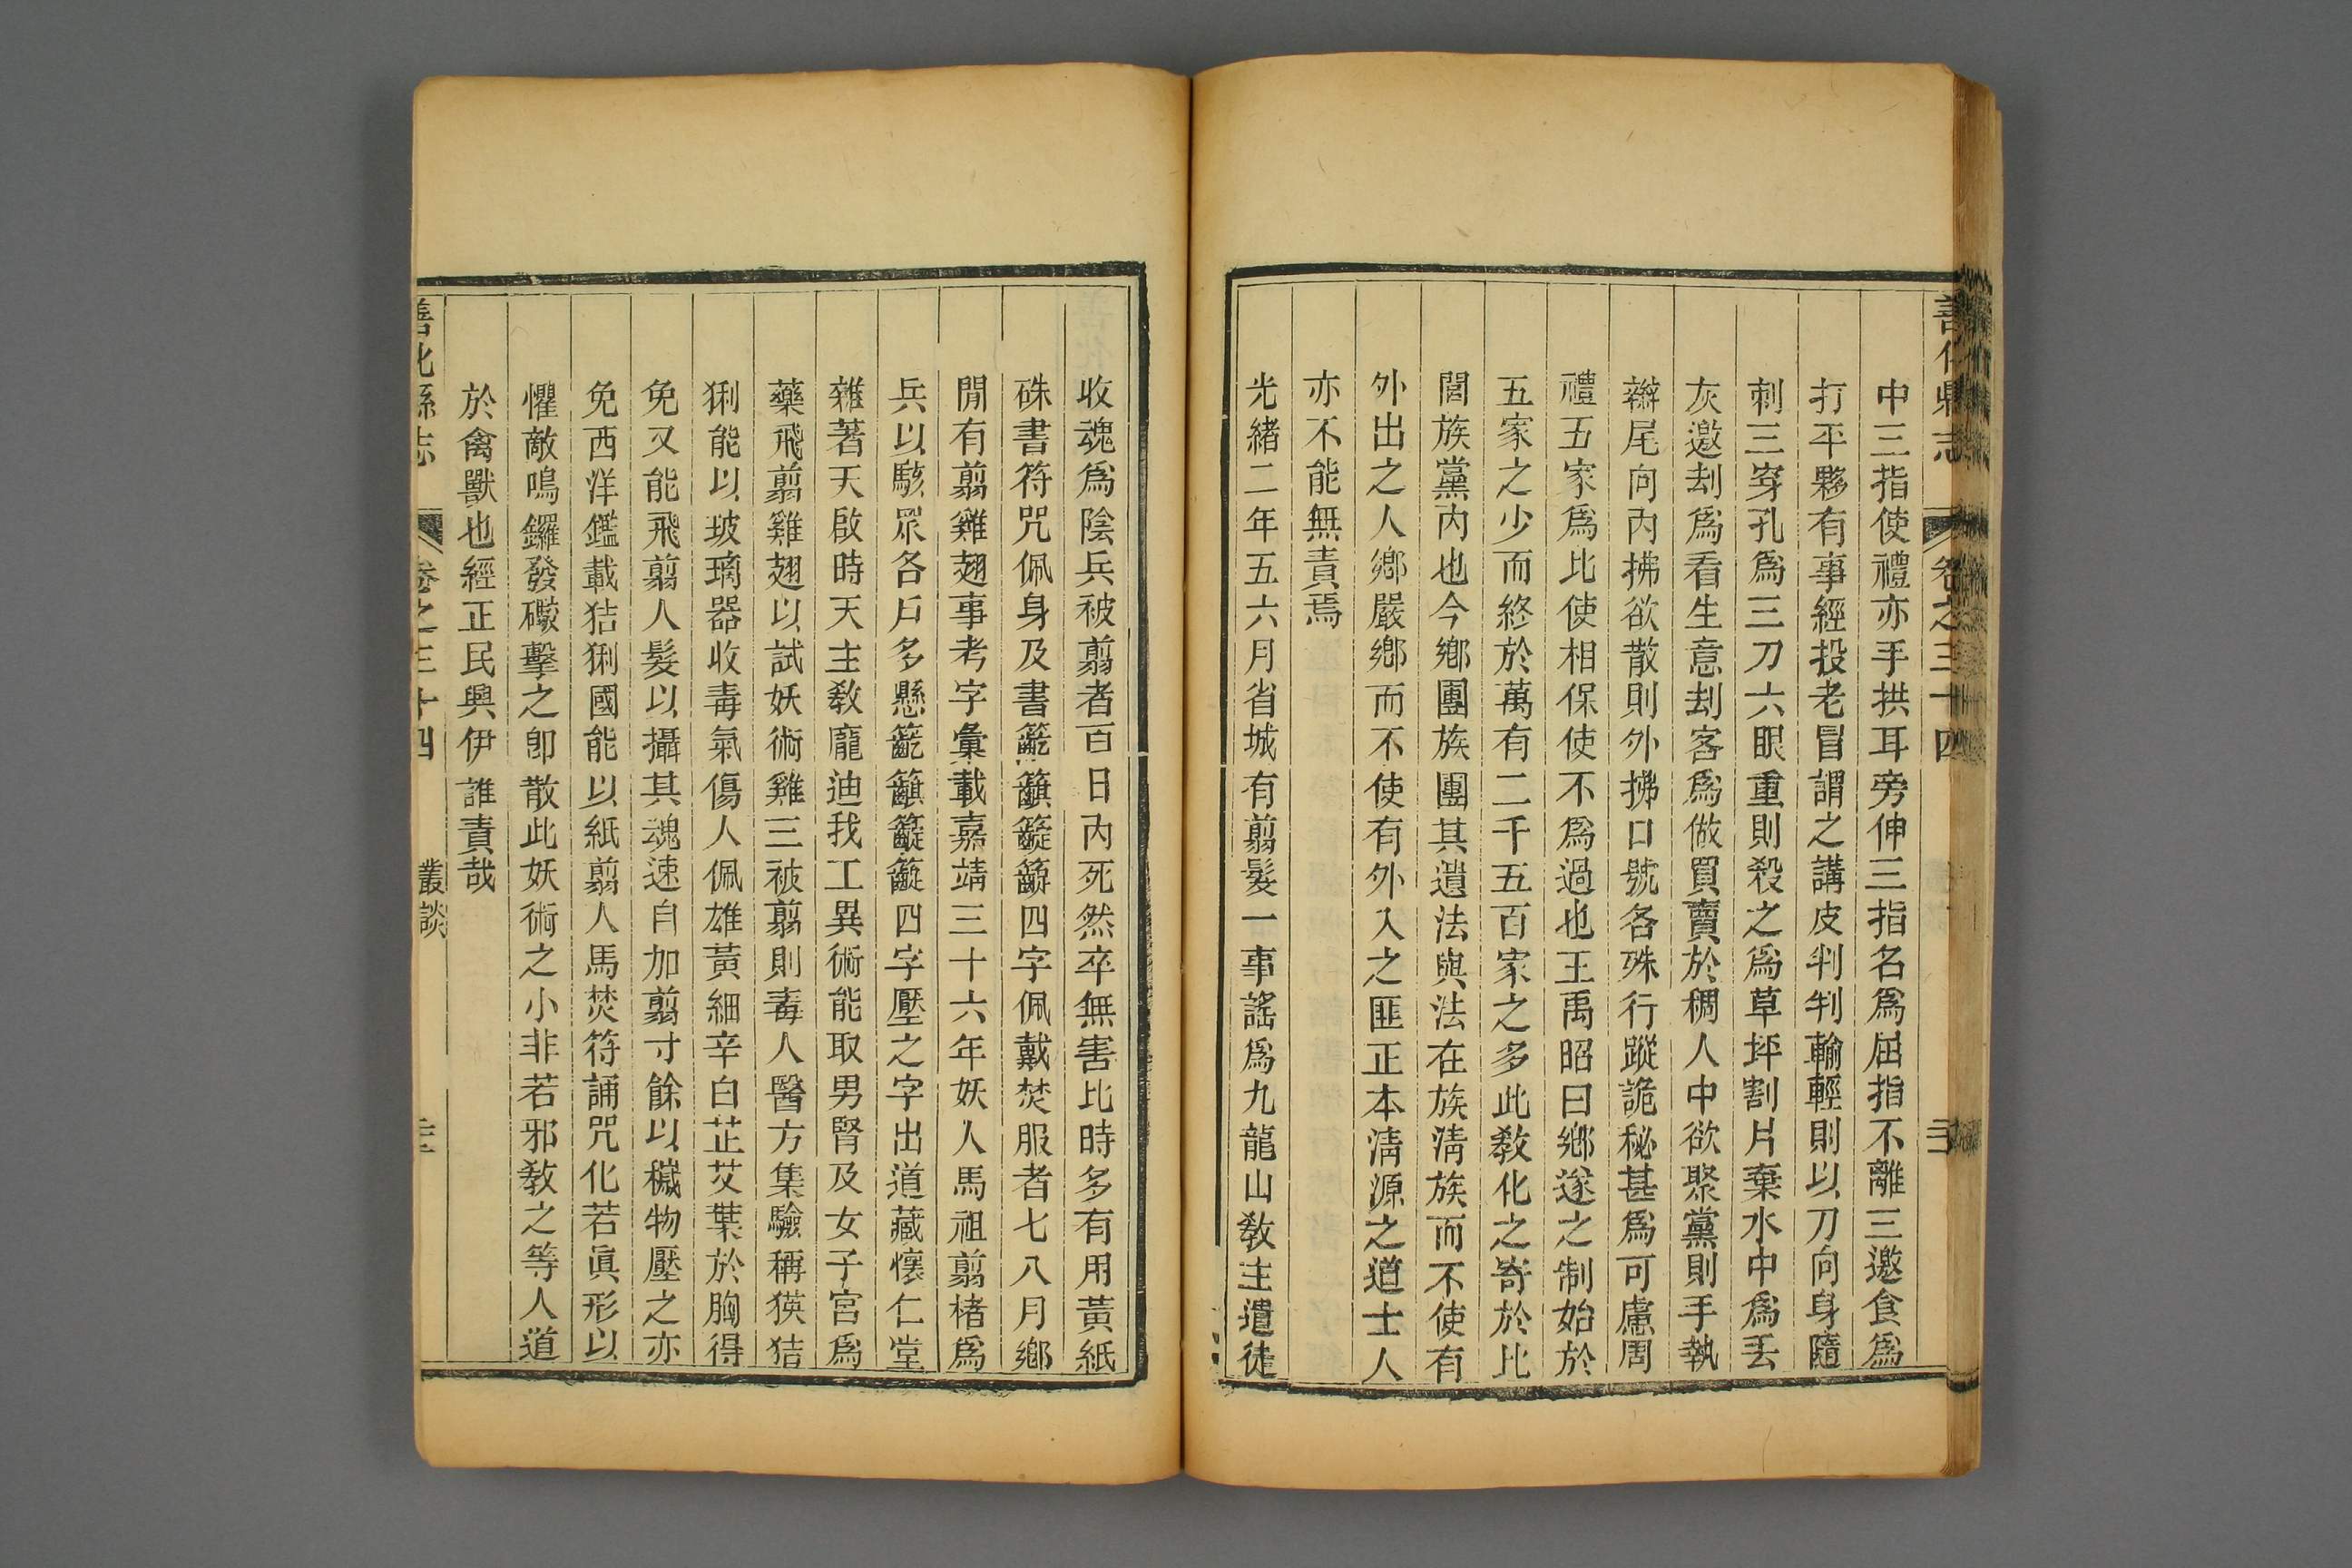 善化縣志
卷之三十四
中三指使禮亦手拱耳旁伸三指名爲屈指不離三邀食爲
打平夥有事經投老冒謂之講皮判判輸輕則以刀向身隨
刺三穿孔爲三刀六眼重則殺之爲草坪割片棄水中爲丟
灰邀刦爲看生意刦客爲做買賣於稠人中欲聚黨則手執
辮尾向內拂欲散則外拂口號各殊行蹤詭秘甚爲可慮周
禮五家爲比使相保使不爲過也王禹昭曰鄉遂之制始於
五家之少而終於萬有二千五百家之多此敎化之寄於比
閭族黨內也今鄉團族團其遺法與法在族淸族而不使有
外出之人鄉嚴鄉而不使有外入之匪正本淸源之道士人
亦不能無責焉
光緖二年五六月省城有翦髮一事謠爲九龍山敎主遣徒
收魂爲陰兵被翦者百日內死然卒無害比時多有用黃紙
硃書符咒佩身及書䶬䶭䶮䶯四字佩戴焚服者七八月鄉
閒有翦雞翅事考字彙載嘉靖三十六年妖人馬祖翦楮爲
兵以駭眾各戶多懸四字壓之字出道藏懷仁堂
雜著天啟時天主敎龐迪我工異術能取男腎及女子宮爲
藥飛翦雞翅以試妖術雞三被翦則毒人醫方集驗稱猰狤
猁能以玻璃器收毒氣傷人佩雄黃細辛白芷艾葉於胸得
免又能飛翦人髮以攝其魂速自加翦寸餘以穢物壓之亦
免西洋鑑載狤猁國能以紙翦人馬焚符誦咒化若眞形以
懼敵鳴鑼發礮擊之卽散此妖術之小非若邪敎之等人道
於禽獸也經正民興伊誰責哉
善化縣志
卷之三十四
叢談